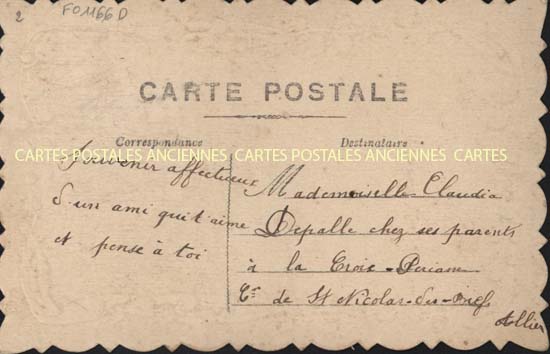 2
FO1166D
CARTE POSTALE
Correspondance
Destinataire
CARTES POSTALES ANCIENNES CARTES POSTALES ANCIENNES CARTES
Souvenir affectueux
d'un ami qui t'aime
et pense à toi
Mademoiselle Claudia
Depalle chez ses parents
à la Croix
de St Nicolas-des-Biefs
Allier